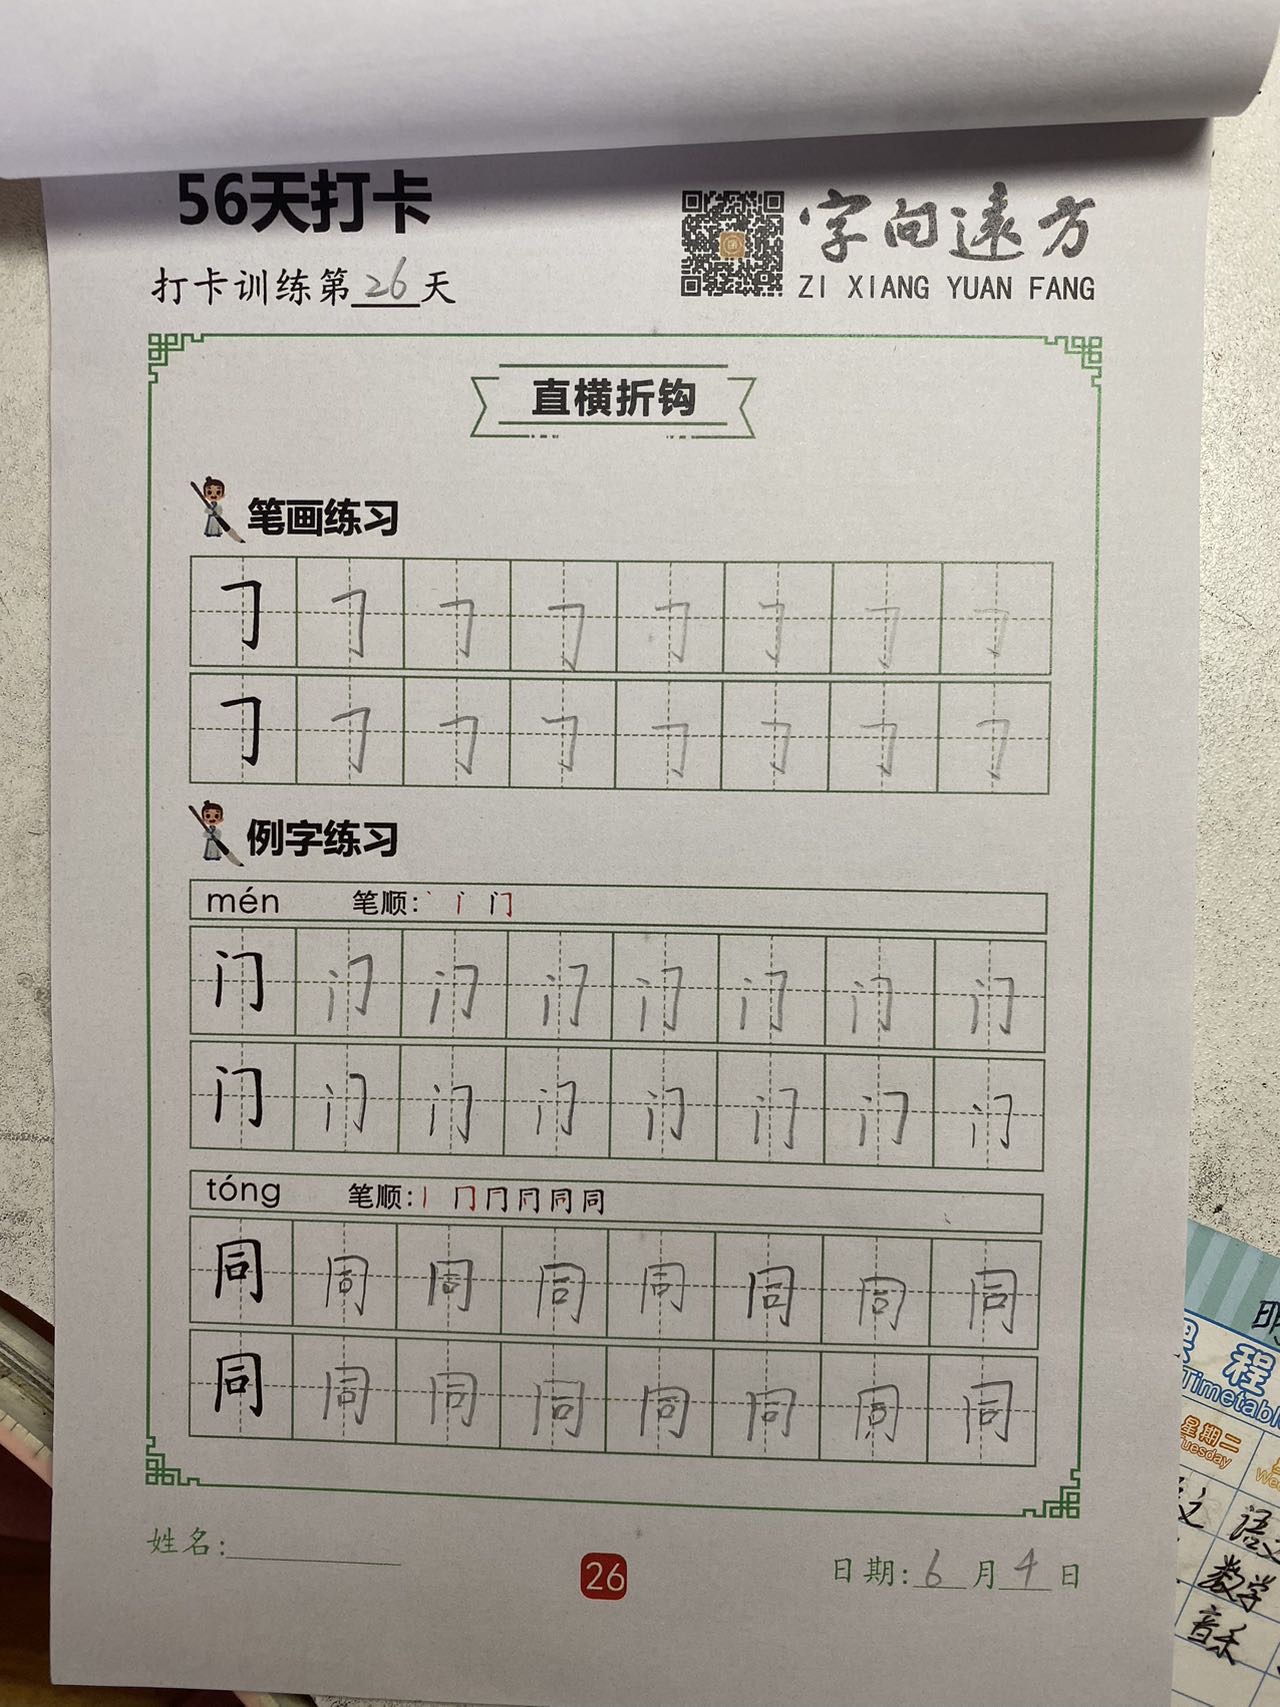 56天打卡
字向遠方
打卡训练第26天
ZI XIANG YUAN FANG
直横折钩
笔画练习
𠃌 𠃌 𠃌 𠃌 𠃌 𠃌 𠃌 𠃌
𠃌 𠃌 𠃌 𠃌 𠃌 𠃌 𠃌 𠃌
例字练习
mén 笔顺: 丶 门
门 门 门 门 门 门 门 门
门 门 门 门 门 门 门 门
tóng 笔顺: 丨 冂 同 同
同 同 同 同 同 同 同 同
同 同 同 同 同 同 同 同
姓名:
26
日期: 6 月 4 日
明
课 程
Timetabl
星期二
Tuesday
We
文 语文
数学
音乐